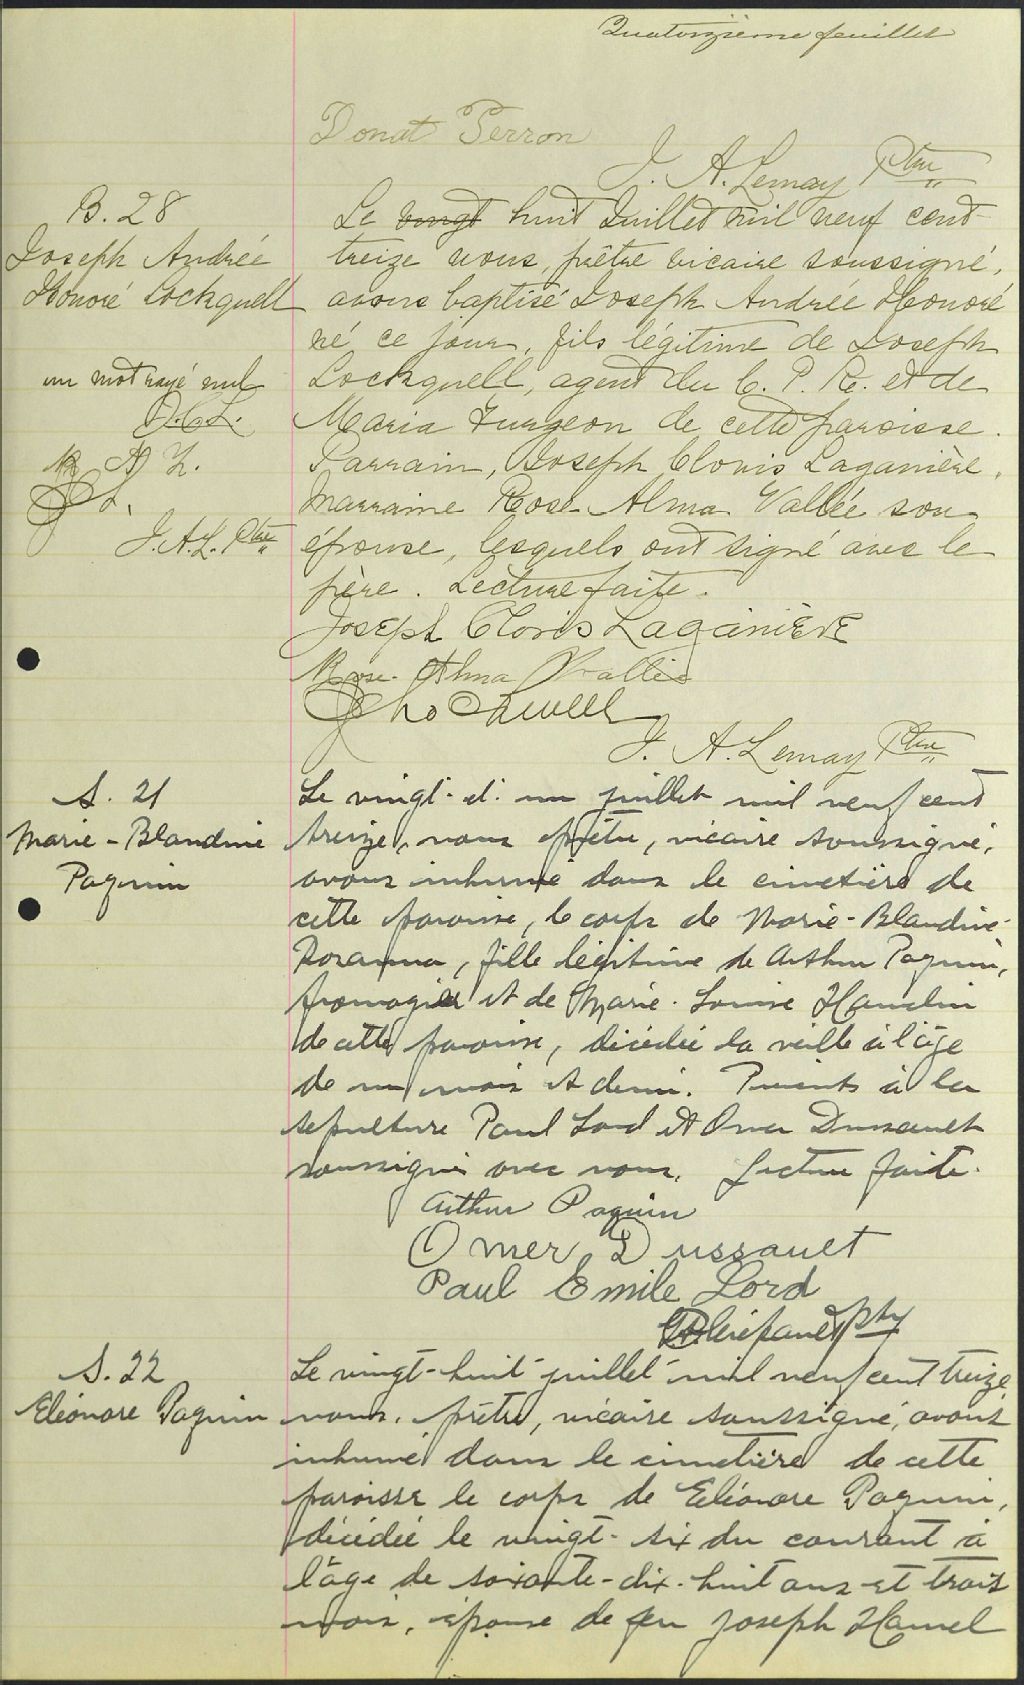 Quatorzième feuillet
Donat Perron
J. A. Lemay Ptre
B. 28
Joseph Andrée
Honoré Lockquell
un mot rayé nul
J.C.L.
R A V.
J.A.L. Ptre
Le vingt huit Juillet mil neuf cent
treize nous, prêtre vicaire soussigné,
avons baptisé Joseph Andrée Honoré
né ce jour, fils légitime de Joseph
Lockquell, agent du C. P. R. et de
Maria Turgeon de cette paroisse.
Parrain, Joseph Clovis Laganière,
Marraine Rose Alma Vallée son
épouse, lesquels ont signé avec le
père. Lecture faite.
Joseph Clovis Laganière
Rose-Alma Vallée
J. A. Lemay Ptre
S. 21
Marie-Blandine
Paquin
Le vingt-et-un juillet mil neuf cent
treize, nous prêtre, vicaire soussigné,
avons inhumé dans le cimetière de
cette paroisse, le corps de Marie-Blandine-
Rosanna, fille légitime de Arthur Paquin,
fromagier et de Marie-Louise Hamelin
de cette paroisse, décédée la veille à l'âge
de un mois et demi. Présents à la
sépulture Paul Lord et Omer Dussault
soussignés avec nous. Lecture faite.
Arthur Paquin
Omer Dussault
Paul Emile Lord
ptre
S. 22
Eléonore Paquin
Le vingt-huit juillet mil neuf cent treize,
nous, prêtre, vicaire soussigné, avons
inhumé dans le cimetière de cette
paroisse le corps de Eléonore Paquin,
décédée le vingt-six du courant à
l'âge de soixante-dix-huit ans et trois
mois, épouse de feu Joseph Hamel